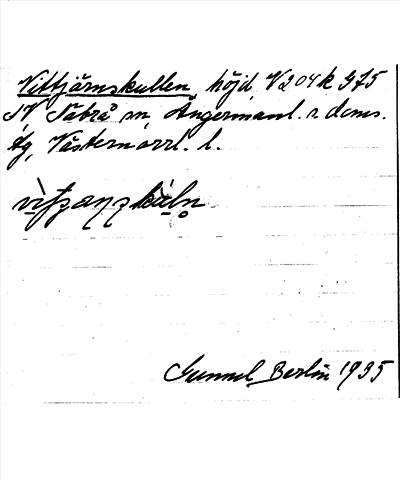 Vittjärnskullen, höjd, V204k 975
SV Säbrå sn, Ångermanl. s. doms.
tg, Västernorrl. l.
Gunnel Berlin 1935